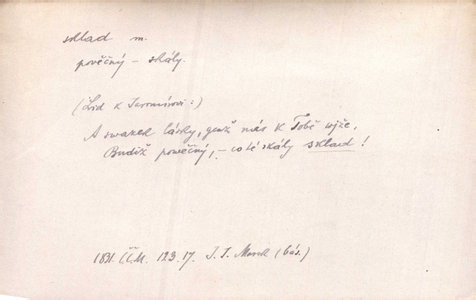 sklad m.
pověčný – skály.
(Lid k Jaromírovi:)
A swazek lásky, genž nás k Tobě wjže,
Budiž powěčný, – co té skály sklad!
1831. ČČM. 123.17. J. J. Marek (bás.)